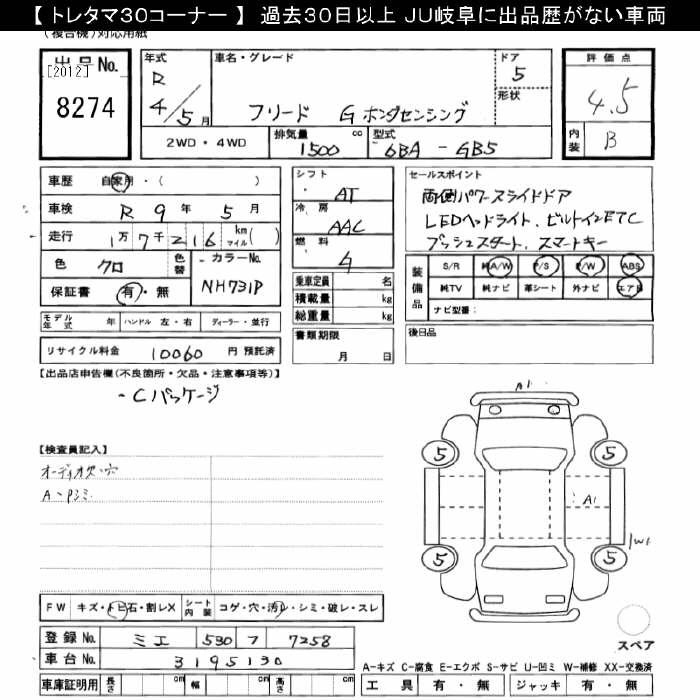 【トレタマ30コーナー】 過去30日以上 JU岐阜に出品歴がない車両
(複合機)対応用紙
出品No. [2012] 8274
年式 R 4/5月
車名・グレード フリード G ホンダセンシング
ドア 5
形状
2WD・4WD
排気量 1500 cc
型式 6BA - GB5
評価点 4.5
内装 B
車歴 自家用・( )
車検 R 9年 5月
走行 1万7千216km マイル( )
色 クロ 色替
カラーNo. NH731P
保証書 有・無
シフト AT
冷房 AAC
燃料
乗車定員 名
積載量 kg
総重量 kg
セールスポイント
両側パワースライドドア
LEDヘッドライト、ビルトインETC
プッシュスタート、スマートキー
装備品 S/R 純A/W P/S P/W ABS
純TV 純ナビ 革シート 外ナビ エアB
ナビ型番:
モデル年式 年 ハンドル 左・右 ディーラー・並行
書類期限 月 日
後日品
リサイクル料金 10060 円 預託済
【出品店申告欄(不良箇所・欠品・注意事項等)】
Cパッケージ
A1
【検査員記入】
オーディオ欠・穴
5 5
A1
W1
5 5
FW キズ・トビ石・割レX シート内装 コゲ・穴・汚レ・シミ・破レ・スレ
登録No. ミエ 530 フ 7258
車台No. 3195130
スペア
A-キズ C-腐食 E-エクボ S-サビ U-凹ミ W-補修 XX-交換済
車庫証明用 長さ cm 幅 cm 高さ cm
工具 有・無 ジャッキ 有・無